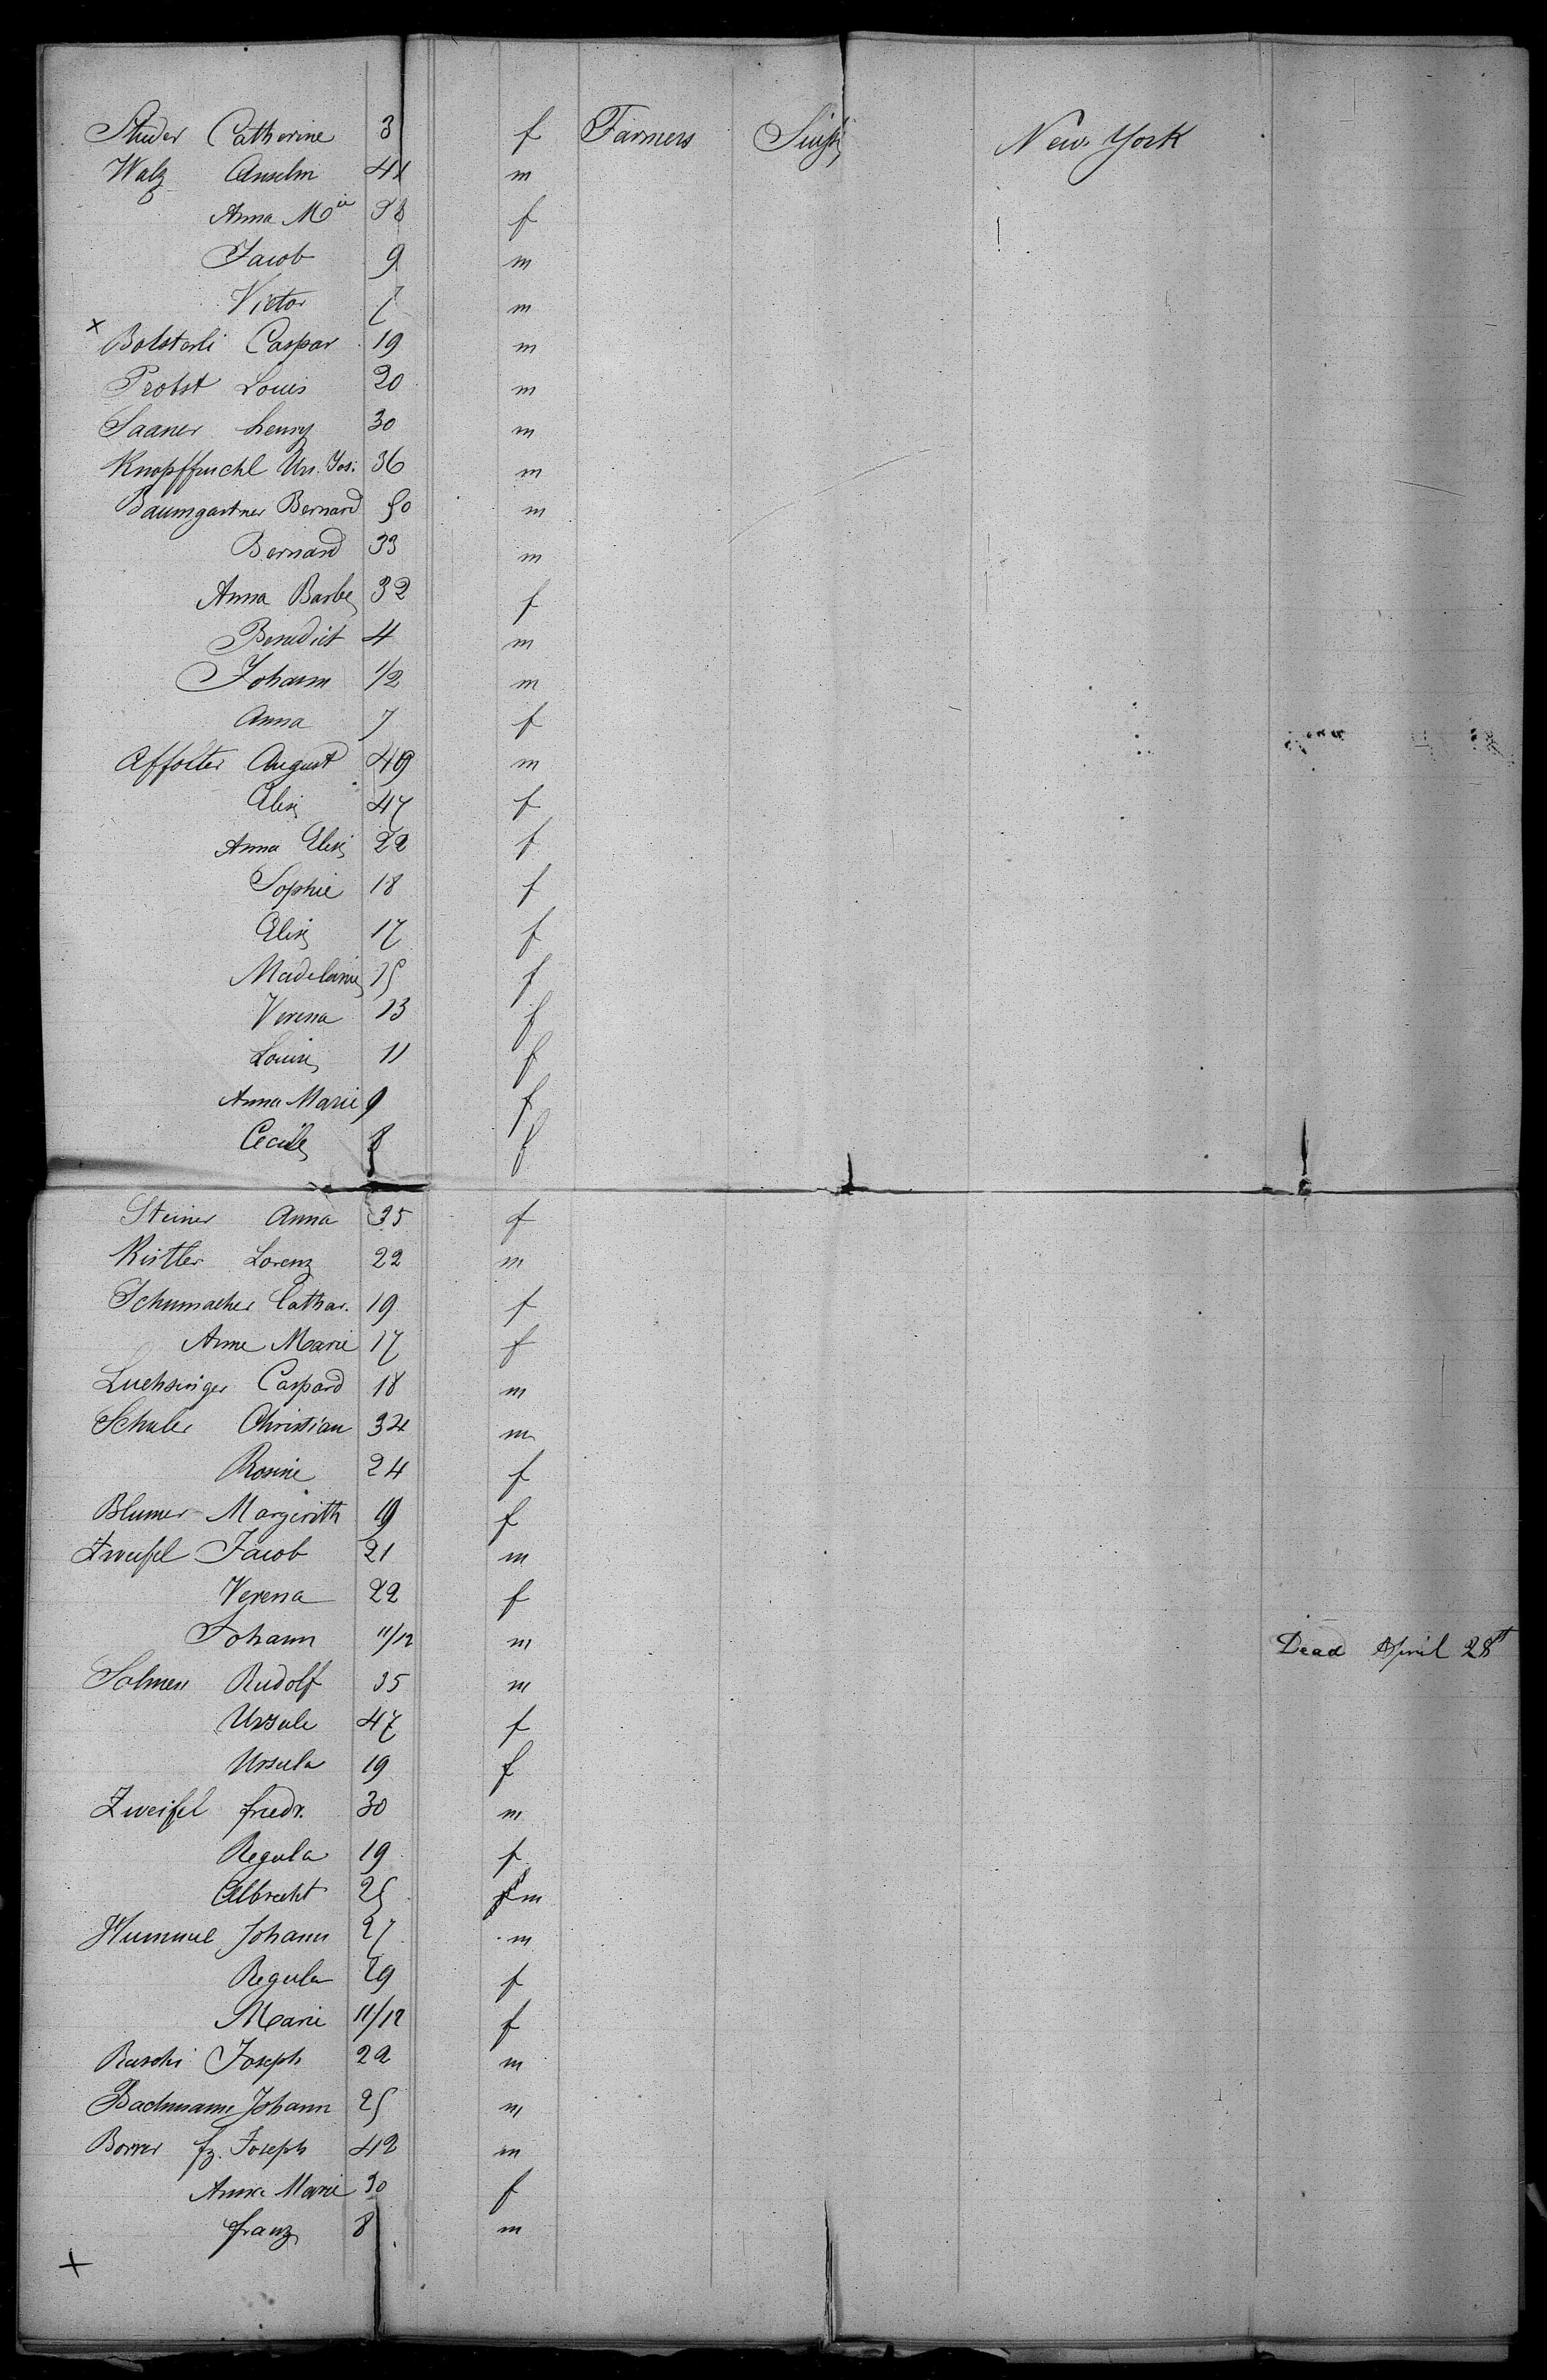 Studer Catherine 3 f Farmers New York
Walz Anselm 41 m
Anna Mia 38 f
Jacob 9 m
Victor 7 m
x Bolsterli Caspar 19 m
Probst Louis 20 m
Saaner henry 30 m
Urs. Jos: 36 m
Baumgartner Bernard 50 m
Bernard 33 m
Anna Barbe 32 f
Benedict 4 m
Johann 1/2 m
Anna 7 f
Affolter August 49 m
Elise 47 f
Anna Elise 22 f
Sophie 18 f
Elise 17 f
Madelaine 15 f
Verena 13 f
Louise 11 f
Anna Marie 9 f
Cecile 8 f
Steiner Anna 35 f
Kistler Lorenz 22 m
Schumacher Cathar. 19 f
Anne Marie 17 f
Luchsinger Caspard 18 m
Schuler Christian 34 m
Rosine 24 f
Blumer Margerith 19 f
Zweifel Jacob 21 m
Verena 22 f
Johann 11/12 m Dead April 28t
Rudolf 35 m
Ursule 47 f
Ursula 19 f
Zweifel friedr. 30 m
Regula 19 f
Albrecht 25 m
Johann 27 m
Regula 29 f
Marie 11/12 f
Joseph 22 m
Bachmann Johann 25 m
Borrer fz. Joseph 42 m
Anna Marie 30 f
franz 8 m
x